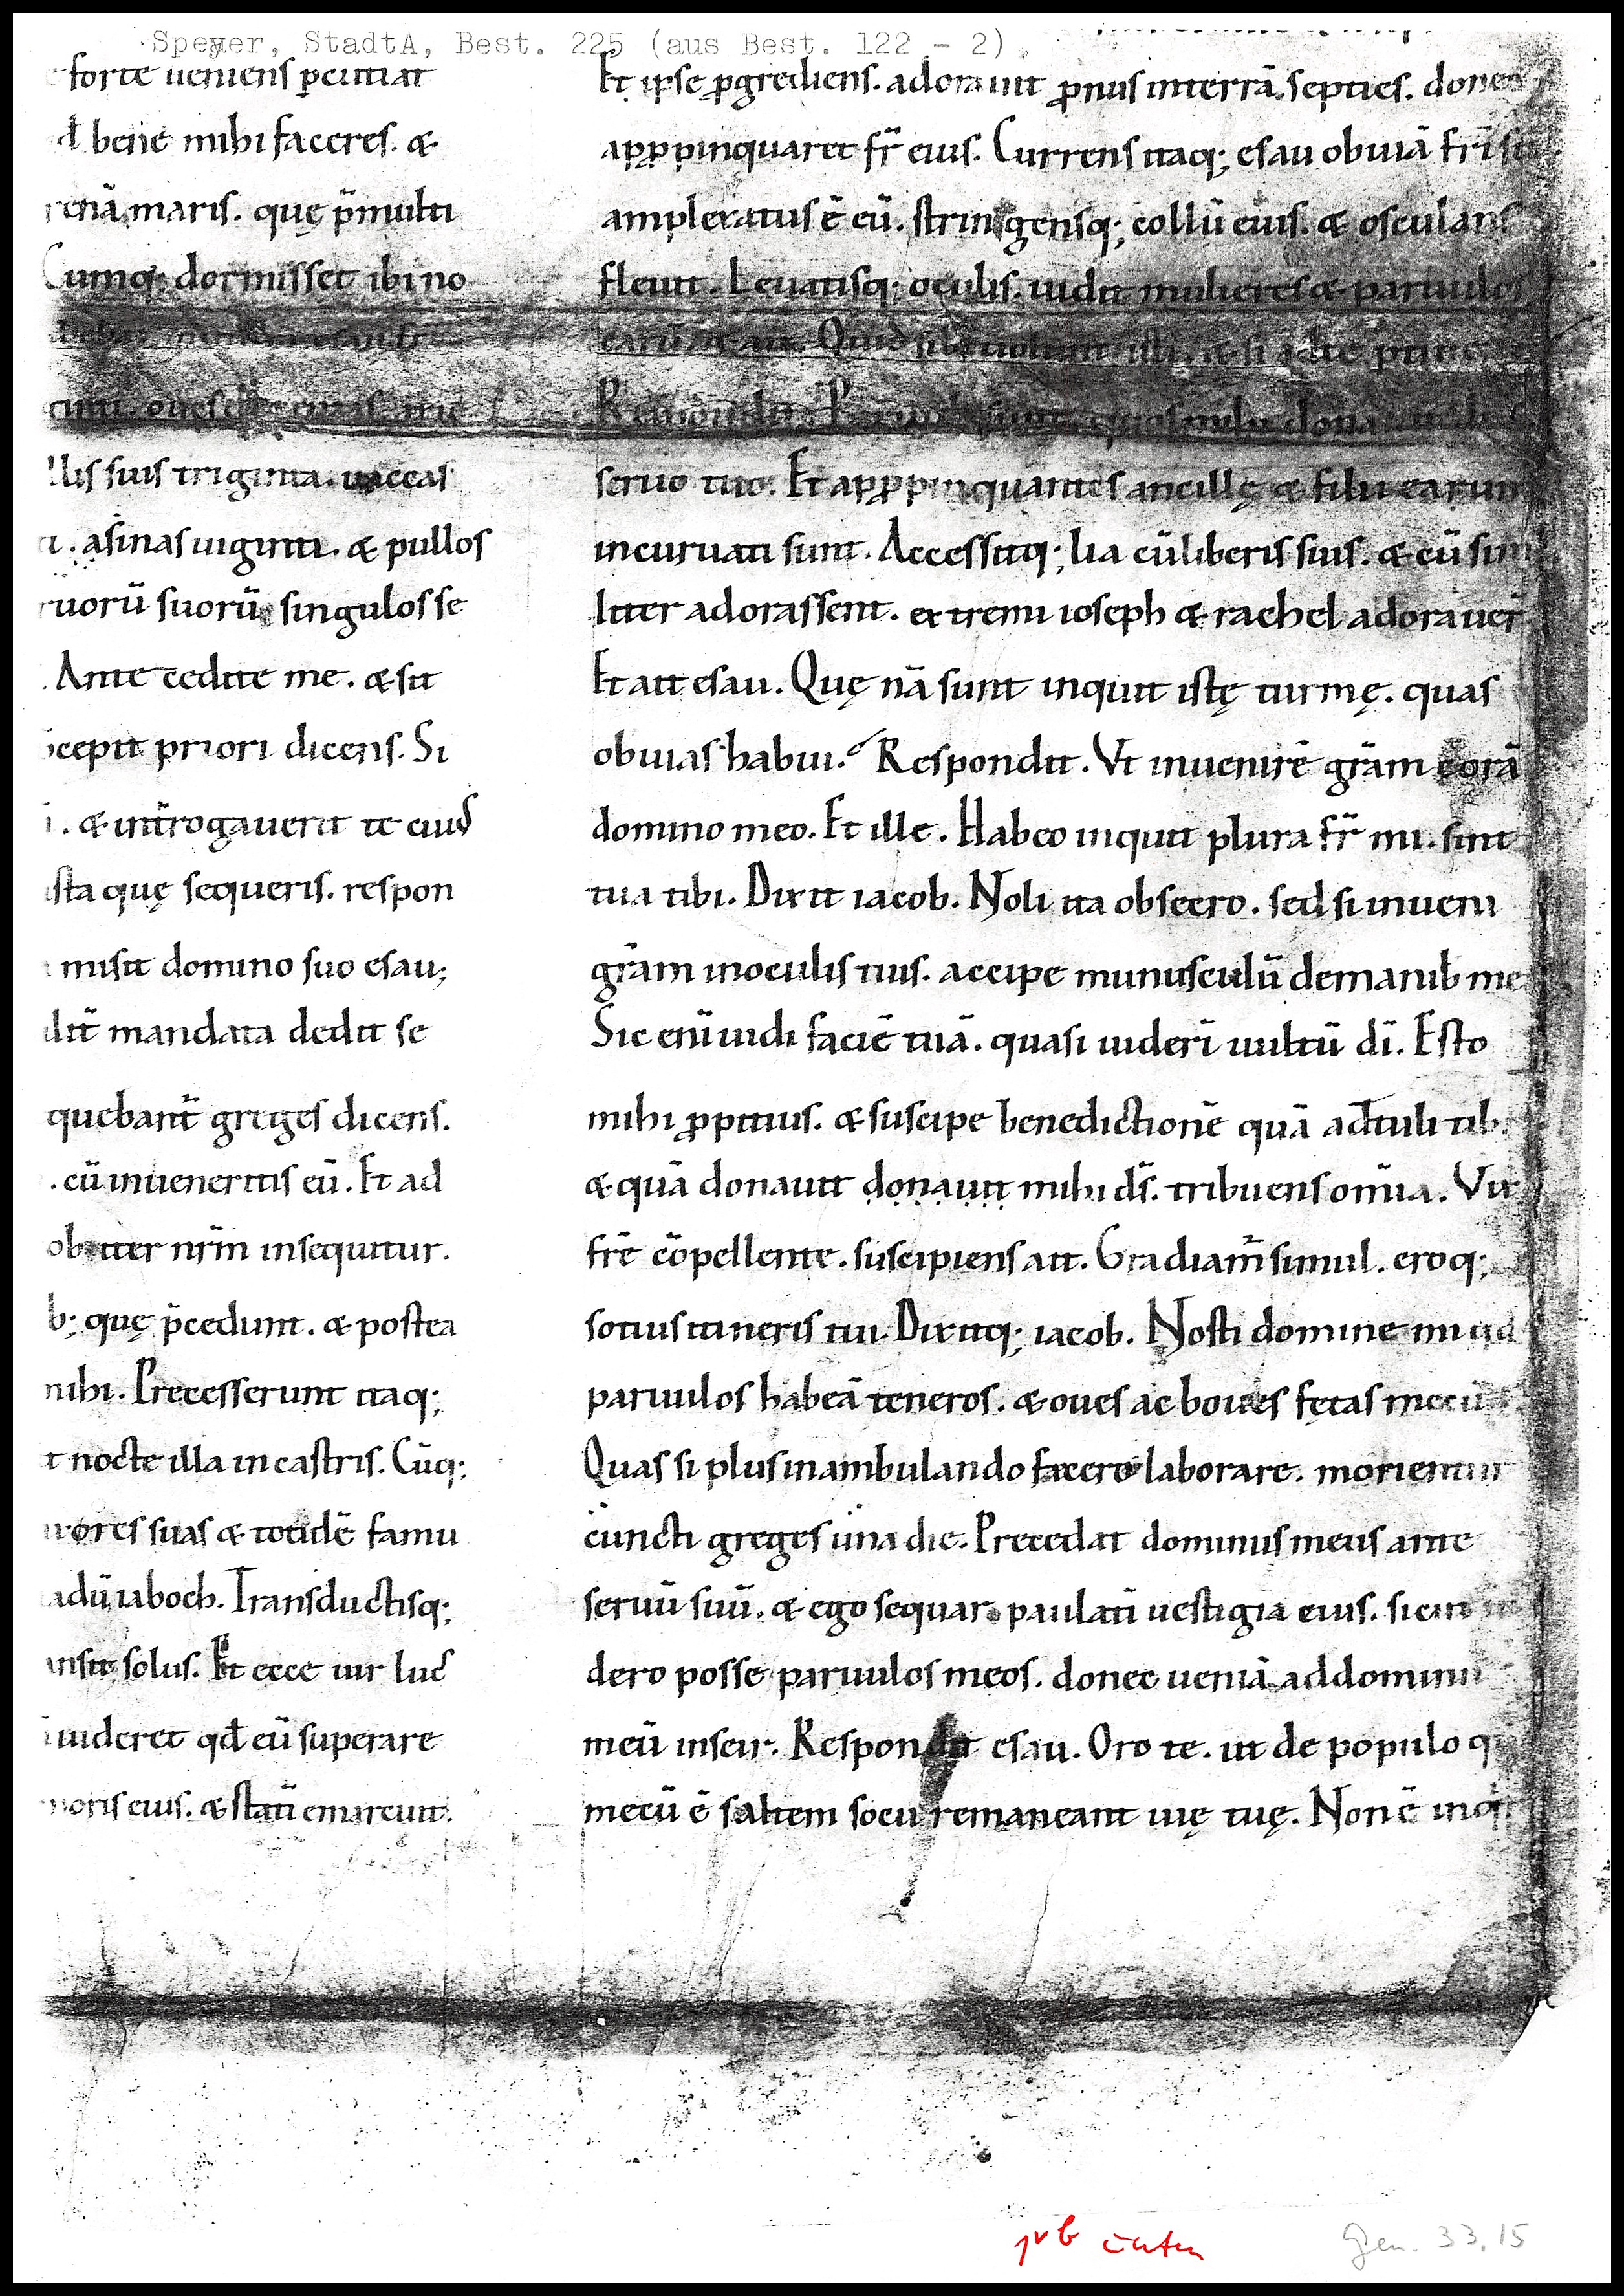 Speyer, StadtA, Best. 225 (aus Best. 122 - 2)
forte ueniens ꝑcutiat
d̄ bene mihi faceres. &
renā maris. quę p̄multi
Cumq; dormisset ibi no
llis suis triginta. uaccas
asinas uiginti. & pullos
uorū suorū singulos se
Ante cedite me. & sit
cepit priori dicens. Si
& int̄rogauerit te cuius
sta quę sequeris. respon
misit domino suo esau;
dit̄ mandata dedit se
quebant̄ greges dicens.
cū inueneritis eū. Et ad
ob iter nr̄m insequitur.
b; quę p̄cedunt. & postea
mihi. Precesserunt itaq;
t nocte illa in castris. Cūq;
uxores suas & totidē famu
adū iaboch. Transductisq;
ansit solus. Et ecce uir luc
uideret qd̄ eū superare
moris eius. & stati emarcuit.
Et ipse ꝓgrediens. adorauit ꝓnus in terrā. septies. donec
apꝓpinquaret fr̄ eius. Currens itaq; esau obuiā fr̄i
amplexatus ē eū. stringensq; collū eius. & osculans
fleuit. Leuatisq; oculis. uidit mulieres & paruulos
earū & ait. Quid sibi uolunt isti. & si ad te
Respondit. Paruuli sunt quos mihi dona
seruo tuo. Et apꝓpinquantes ancillę & filii earum
incuruati sunt. Accessitq; lia cū liberis suis. & cū simi
liter adorassent. extremi ioseph & rachel adorauer̄
Et ait esau. Quę nā sunt inquit istę turmę. quas
obuias habui. Respondit. Vt inuenirē gr̄am corā
domino meo. Et ille. Habeo inquit plura fr̄ mi. sint
tua tibi. Dixit iacob. Noli ita obsecro. sed si inueni
gr̄am in oculis tuis. accipe munusculū de manib me
Sic eni uidi faciē tuā. quasi uideri uultū di. Esto
mihi ꝓpitius. & suscipe benedictionē quā adtuli tibi
& quā donauit donauit mihi ds̄. tribuens om̄ia. Vix
fr̄e cōpellente. suscipiens ait. Gradiam̄ simul. eroq;
sotius itineris tui. Dixitq; iacob. Nosti domine mi qd
paruulos habeā teneros. & oues ac boues fętas mecū
Quas si plus in ambulando facero laborare. morientur
cuncti greges una die. Precedat dominus meus ante
seruū suū. & ego sequar paulati uestigia eius. sicut
dero posse paruulos meos. donec ueniā ad dominū
meū inseir. Respondit esau. Oro te. ut de populo q
mecū ē saltem socii remaneant uię tuę. Non ē inq
Gen. 33,15